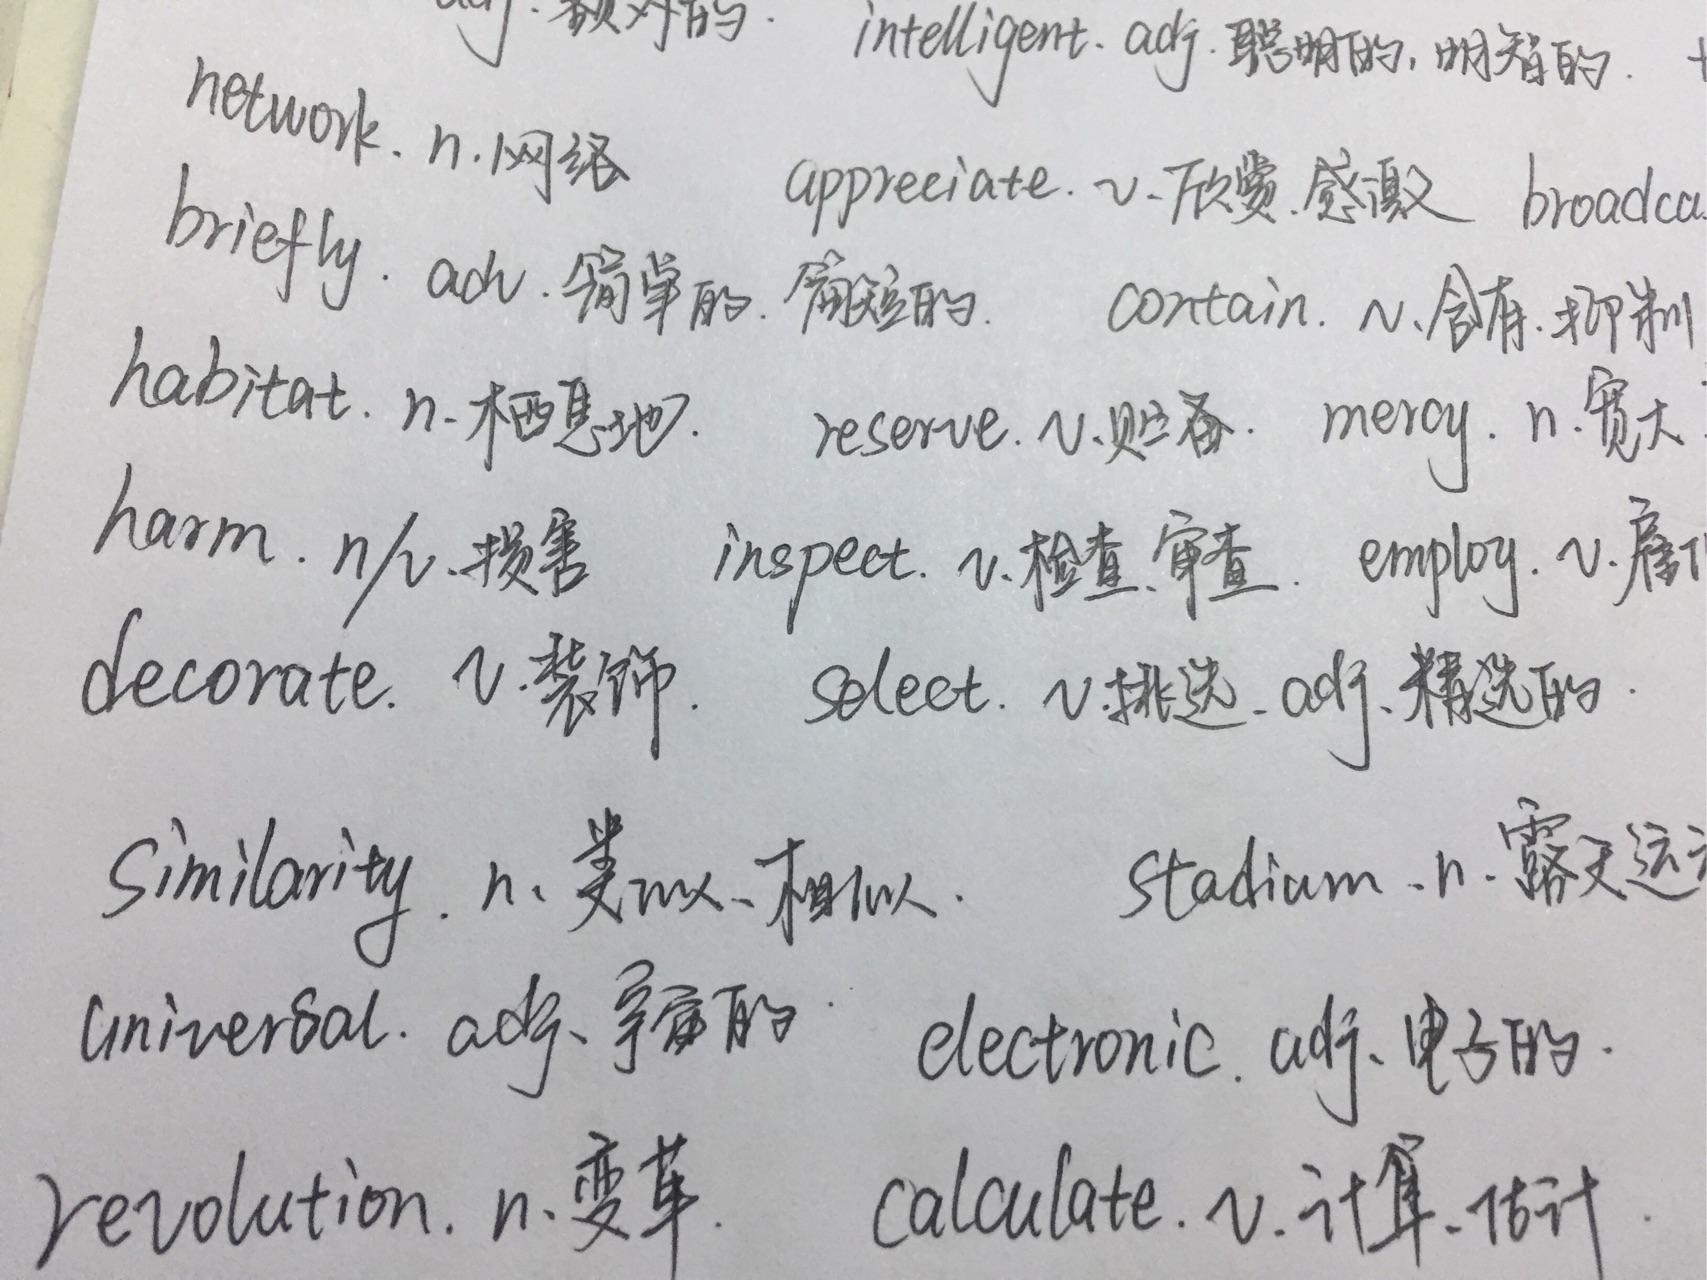 adj. 敌对的. intelligent. adj. 聪明的, 明智的.
network. n. 网络 appreciate. v. 欣赏. 感激 broadca
briefly. adv. 简单的. 简短的. contain. v. 含有. 抑制
habitat. n. 栖息地. reserve. v. 贮备. mercy. n. 宽大
harm. n/v. 损害 inspect. v. 检查. 审查. employ. v. 雇
decorate. v. 装饰. select. v. 挑选. adj. 精选的.
similarity. n. 类似、相似. stadium. n. 露天运
universal. adj. 宇宙的. electronic. adj. 电子的.
revolution. n. 变革. calculate. v. 计算、估计.